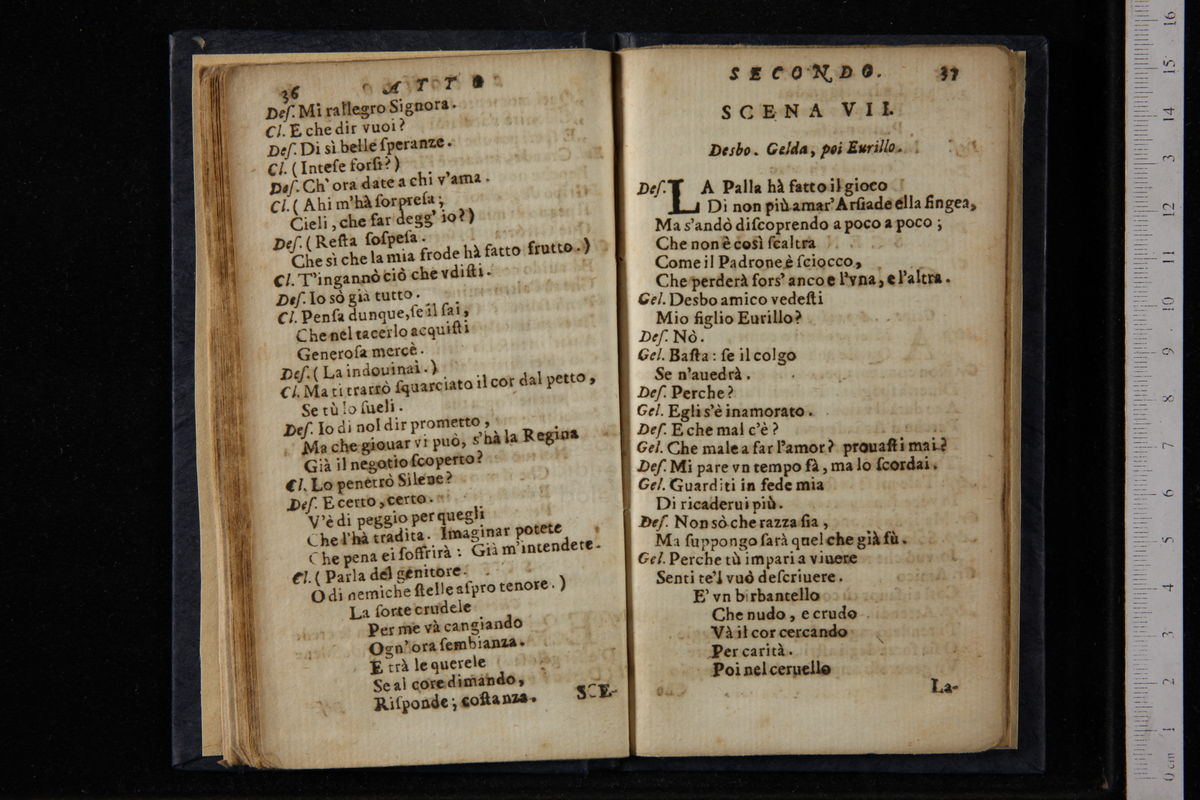 36 ATTO
Deſ. Mi rallegro Signora.
Cl. E che dir vuoi?
Deſ. Di sì belle ſperanze.
Cl. (Inteſe forſi?)
Deſ. Ch' ora date a chi v'ama.
Cl. (Ahi m'hà ſorpreſa;
Cieli, che far degg' io?)
Deſ. (Reſta ſoſpeſa.
Che sì che la mia frode hà fatto frutto.)
Cl. T'ingannò ciò che vdiſti.
Deſ. Io sò già tutto.
Cl. Penſa dunque, ſe il ſai,
Che nel tacerlo acquiſti
Generoſa mercè.
Deſ. (La indouinai.)
Cl. Ma ti trarrò ſquarciato il cor dal petto,
Se tù lo ſueli.
Deſ. Io di nol dir prometto,
Ma che giouar vi può, s'hà la Regina
Già il negotio ſcoperto?
Cl. Lo penetrò Silene?
Deſ. E certo, certo.
V'è di peggio per quegli
Che l'hà tradita. Imaginar potete
Che pena ei ſoffrirà: Già m'intendete.
Cl. (Parla del genitore.
O di nemiche ſtelle aſpro tenore.)
La ſorte crudele
Per me và cangiando
Ogn' ora ſembianza.
E trà le querele
Se al core dimando,
Riſponde; coſtanza.
SCE-
SECONDO. 37
SCENA VII.
Desbo. Gelda, poi Eurillo.
Deſ. LA Palla hà fatto il gioco
Di non più amar' Arſiade ella fingea,
Ma s'andò diſcoprendo a poco a poco;
Che non è così ſcaltra
Come il Padrone è ſciocco,
Che perderà fors' anco e l'vna, e l'altra.
Gel. Desbo amico vedeſti
Mio figlio Eurillo?
Deſ. Nò.
Gel. Baſta: ſe il colgo
Se n'auedrà.
Deſ. Perche?
Gel. Egli s'è inamorato.
Deſ. E che mal c'è?
Gel. Che male a far l'amor? prouaſti mai?
Deſ. Mi pare vn tempo fà, ma lo ſcordai.
Gel. Guarditi in fede mia
Di ricaderui più.
Deſ. Non sò che razza ſia,
Ma ſuppongo ſarà quel che già fù.
Gel. Perche tù impari a viuere
Senti te'l vuò deſcriuere.
E' vn birbantello
Che nudo, e crudo
Và il cor cercando
Per carità.
Poi nel ceruello
La-
0 cm 1 2 3 4 5 6 7 8 9 10 11 12 3 14 15 16